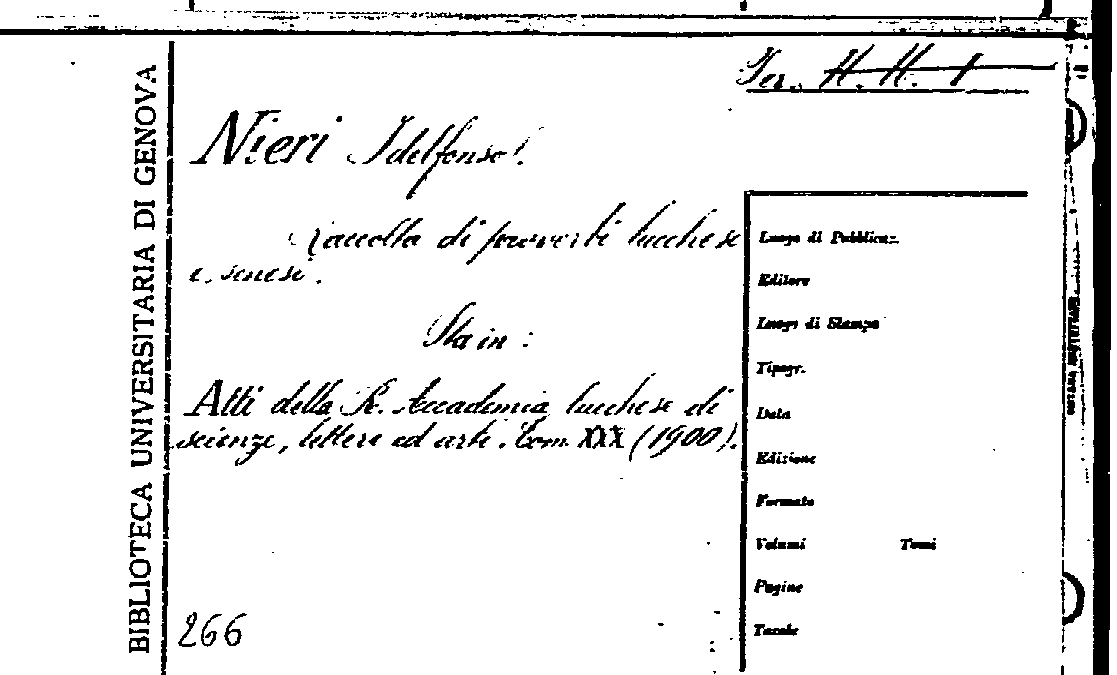 Ser. H. H. 1
Nieri Idelfonso.
Raccolta di proverbi lucchese
e senesi.
Sta in:
Atti della R. Accademia lucchese di
scienze, lettere ed arti. Tom. XXX (1900).
266
BIBLIOTECA UNIVERSITARIA DI GENOVA
Luogo di Pubblicaz.
Editore
Luogo di Stampa
Tipogr.
Data
Edizione
Formato
Volumi Tomi
Pagine
Tavole